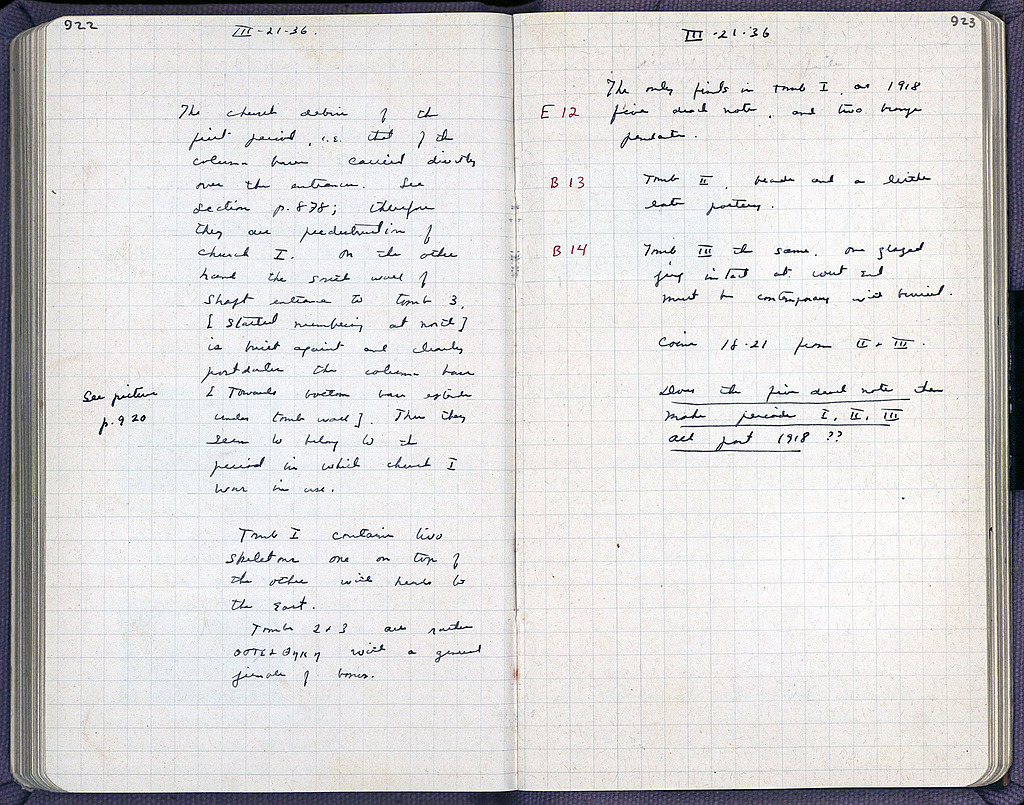 922
III-21-36.
The church debris of the
first period, i.e. that of the
column bases carried directly
over the entrances. See
Section p. 878; therefore
they are predestruction of
church I. On the other
hand the south wall of
shaft entrance to tomb 3,
[started numbering at north]
is built against and clearly
postdates the column base
[Towards bottom base extends
under tomb wall]. Thus they
seem to belong to the
period in which church I
was in use.
See picture
p. 920
Tomb I contains two
skeletons one on top of
the other with heads to
the East.
Tombs 2 + 3 are rather
οστεοθηκη with a general
jumble of bones.
923
III-21-36
The only finds in tomb I, a 1918
E 12 five note, and two bronze
pendants.
B 13 Tomb II, beads and a little
late pottery.
B 14 Tomb III the same. One glazed
jug intact at west end
must be contemporary with burial.
Coins 18-21 from II + III.
Does the five note then
make periods I, II, III
all post 1918 ??